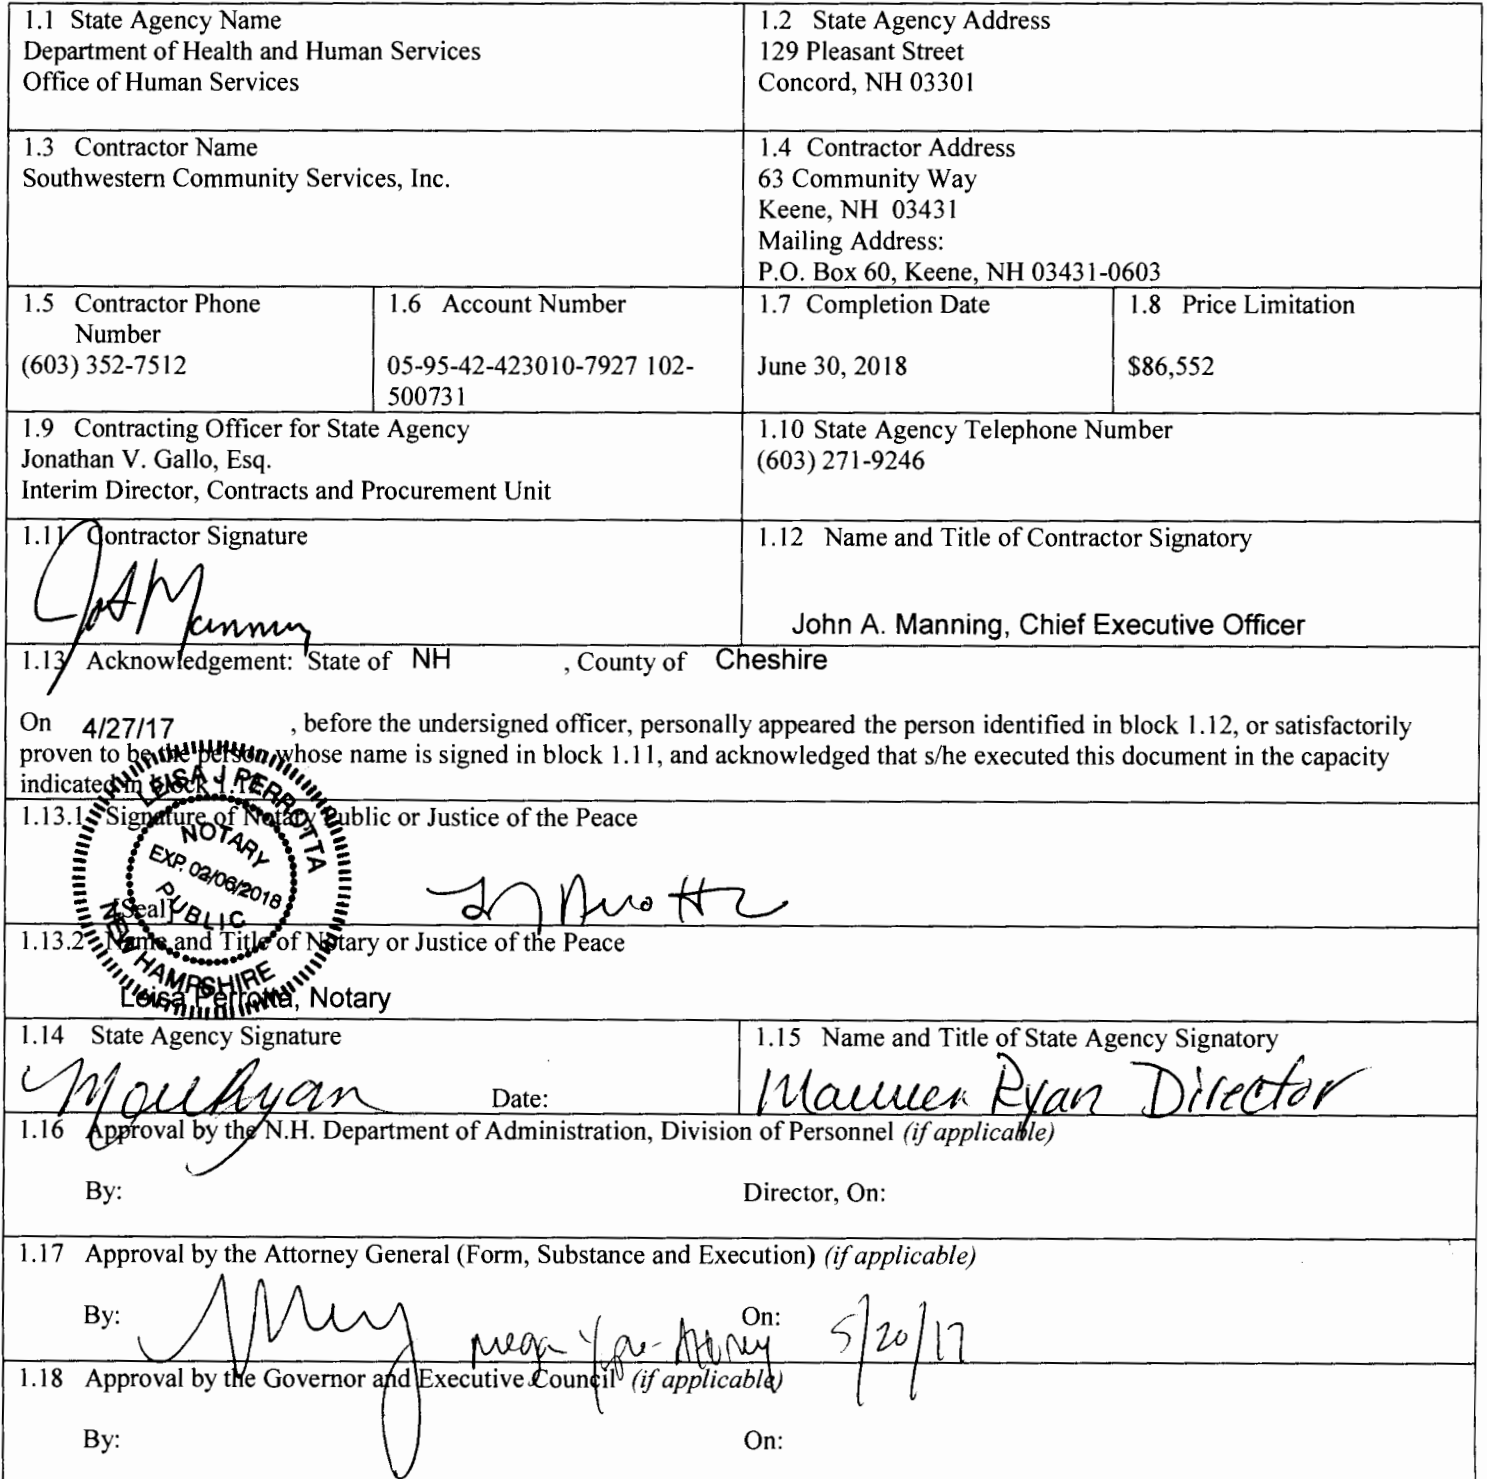 1.1 State Agency Name
Department of Health and Human Services
Office of Human Services
1.2 State Agency Address
129 Pleasant Street
Concord, NH 03301
1.3 Contractor Name
Southwestern Community Services, Inc.
1.4 Contractor Address
63 Community Way
Keene, NH 03431
Mailing Address:
P.O. Box 60, Keene, NH 03431-0603
1.5 Contractor Phone
Number
(603) 352-7512
1.6 Account Number
05-95-42-423010-7927 102-
500731
1.7 Completion Date
June 30, 2018
1.8 Price Limitation
$86,552
1.9 Contracting Officer for State Agency
Jonathan V. Gallo, Esq.
Interim Director, Contracts and Procurement Unit
1.10 State Agency Telephone Number
(603) 271-9246
1.11 Contractor Signature
Manning
1.12 Name and Title of Contractor Signatory
John A. Manning, Chief Executive Officer
1.13 Acknowledgement: State of NH , County of Cheshire
On 4/27/17 , before the undersigned officer, personally appeared the person identified in block 1.12, or satisfactorily
proven to be the person whose name is signed in block 1.11, and acknowledged that s/he executed this document in the capacity
indicated in block 1.12.
1.13.1 Signature of Notary Public or Justice of the Peace
LEISA J PERROTTA
NOTARY
EXP. 02/06/2018
PUBLIC
NEW HAMPSHIRE
[Seal]
1.13.2 Name and Title of Notary or Justice of the Peace
Leisa Perrotta, Notary
1.14 State Agency Signature
Ryan
Date:
1.15 Name and Title of State Agency Signatory
Maureen Ryan Director
1.16 Approval by the N.H. Department of Administration, Division of Personnel (if applicable)
By:
Director, On:
1.17 Approval by the Attorney General (Form, Substance and Execution) (if applicable)
By:
On: 5/20/17
1.18 Approval by the Governor and Executive Council (if applicable)
By:
On: